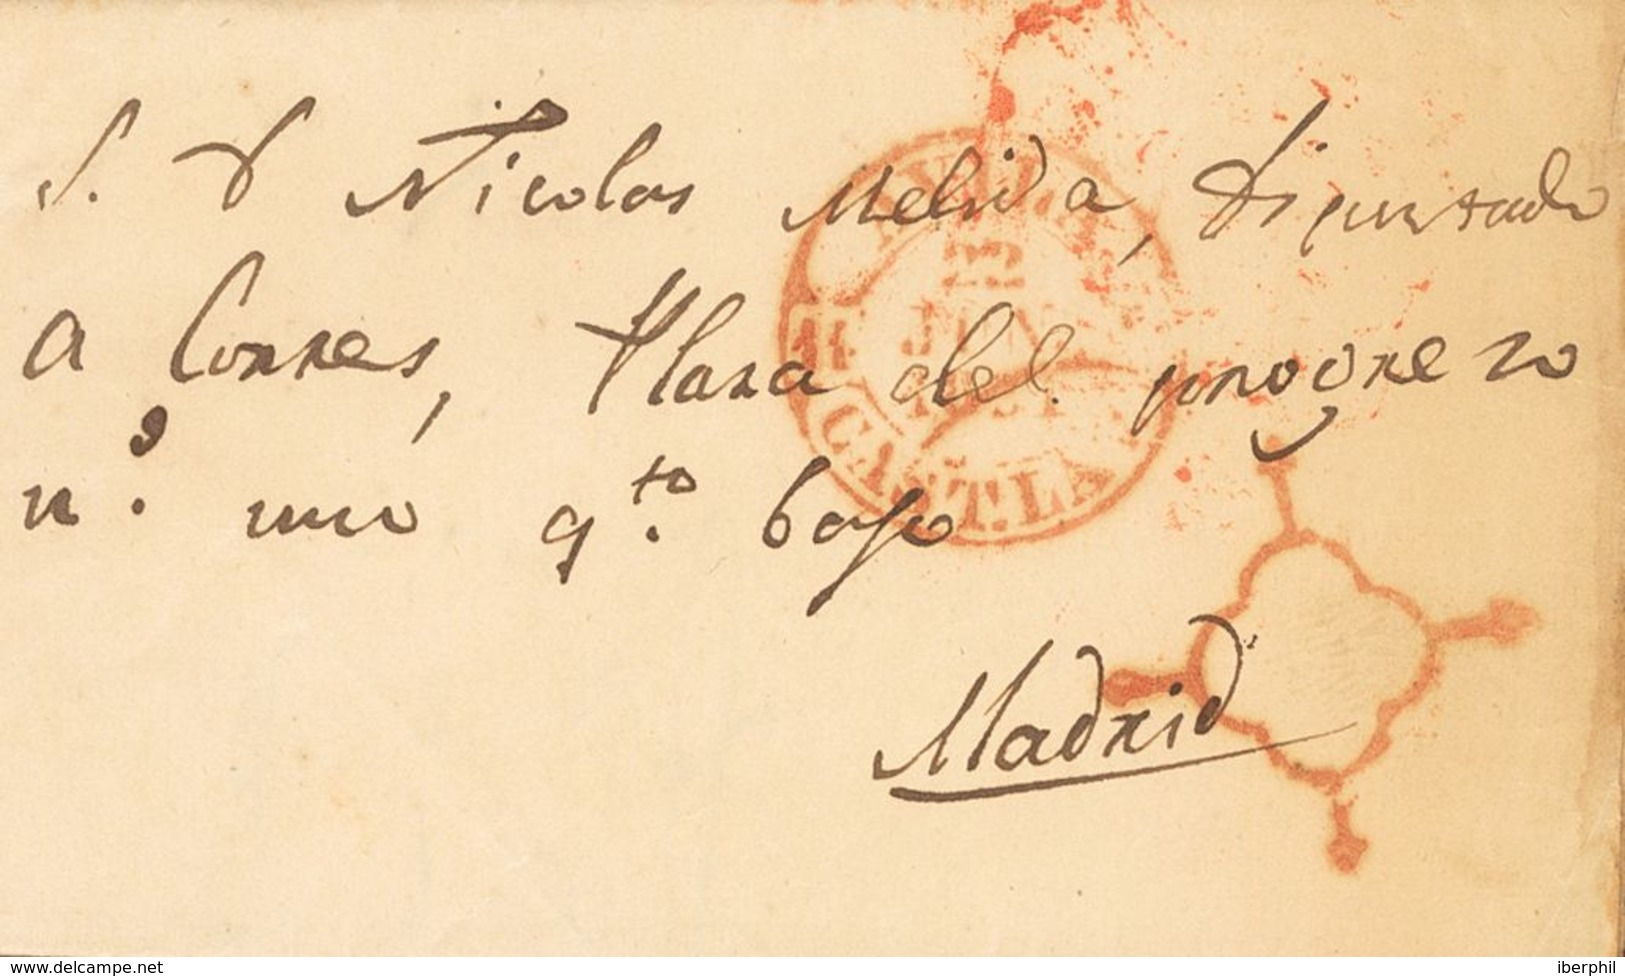 S. D Nicolas Melida, Diputado
a Cortes, Plaza del progreso
nº. uno qto. bajo
Madrid
AVILA
23
JUN
11
CAST.LA V.
www.delcampe.net
iberphil